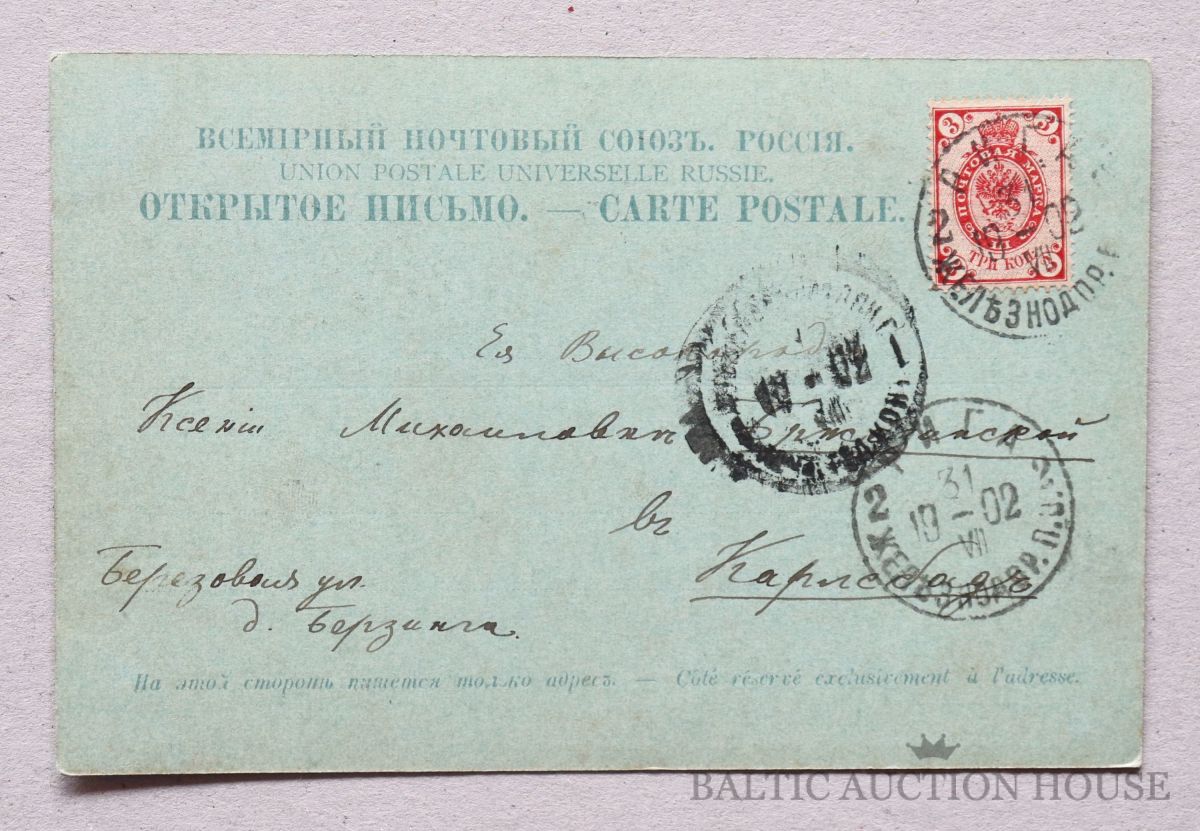 ВСЕМІРНЫЙ ПОЧТОВЫЙ СОЮЗЪ. РОССІЯ.
UNION POSTALE UNIVERSELLE RUSSIE.
ОТКРЫТОЕ ПИСЬМО. — CARTE POSTALE.
3 3
ПОЧТОВАЯ МАРКА
ТРИ КОП.
3 3
31
VII 02
ЖЕЛѢЗНОДОР.
Ея Высокород
19 - 02
1
Ксеніи Михаиловнѣ
РИГА
31
2 19 - 02 2
VII
ЖЕЛѢЗНОДОР. П.
въ
Карлсбадъ
Березовая ул.
д. Берзинга.
На этой сторонѣ пишется только адресъ. — Côté réservé exclusivement à l'adresse.
BALTIC AUCTION HOUSE